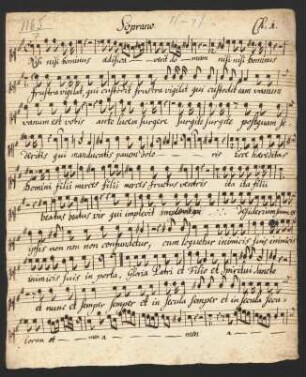 1165 Soprano Ch. 1.
Nisi nisi Dominus aedifica - - verit do - mum nisi nisi Dominus
frustra vigilat, qui custodit frustra vigilat qui custodit eam vanum
vanum est vobis ante lucem surgere surgite surgite postquam se
deritis qui manducatis panem dolo - - ris Ecce haereditas
Domini filii merces filii merces fructus ventris ita ita filii
beatus beatus vir qui implevit desiderium suum ex
ipsis non non non confundetur, cum loquetur inimicis suis inimicis
inimicis suis in porta, Gloria Patri et Filio et Spiritui Sancto
et nunc et semper semper et in secula semper et in secula secu-
lorum A - men a - - men a - -